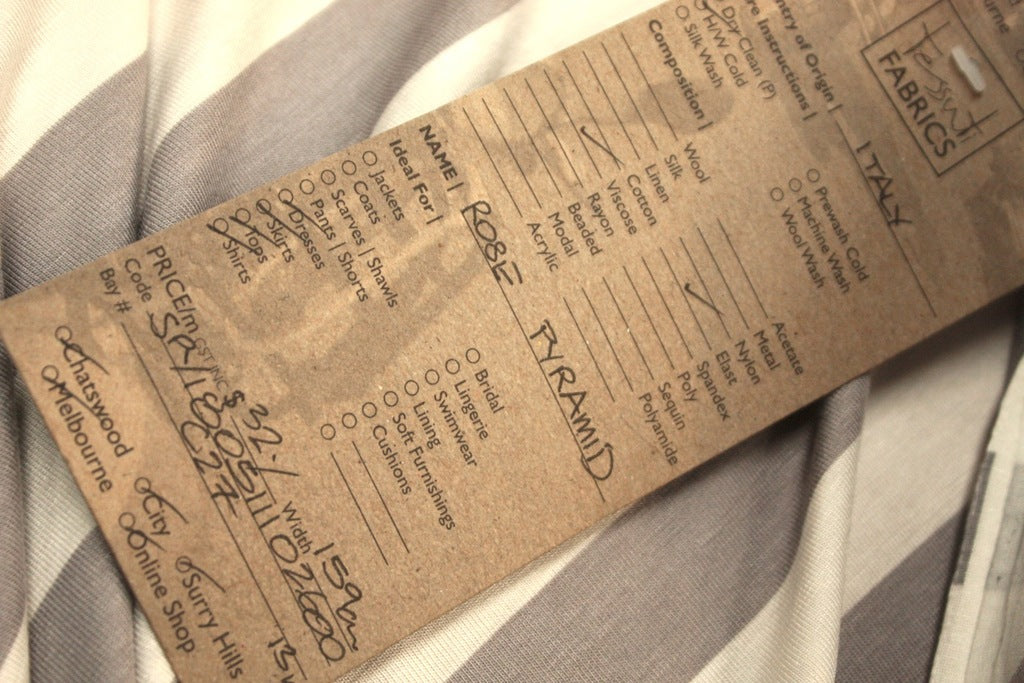 Tessuti
FABRICS
ntry of Origin | ITALY
re Instructions |
Dry Clean (P)
H/W Cold
Silk Wash
Prewash Cold
Machine Wash
Wool Wash
Composition |
Wool
Silk
Linen
Cotton
Viscose
Rayon
Beaded
Modal
Acrylic
Acetate
Metal
Nylon
Elast
Spandex
Poly
Sequin
Polyamide
NAME | ROBE PYRAMID
Ideal For |
Jackets
Coats
Scarves | Shawls
Pants | Shorts
Dresses
Skirts
Tops
Shirts
Bridal
Lingerie
Swimwear
Lining
Soft Furnishings
Cushions
PRICE/m GST INC $32.- Width 159cm
Code SPR/180051102600
Bay # C27
Chatswood City Surry Hills
Melbourne Online Shop